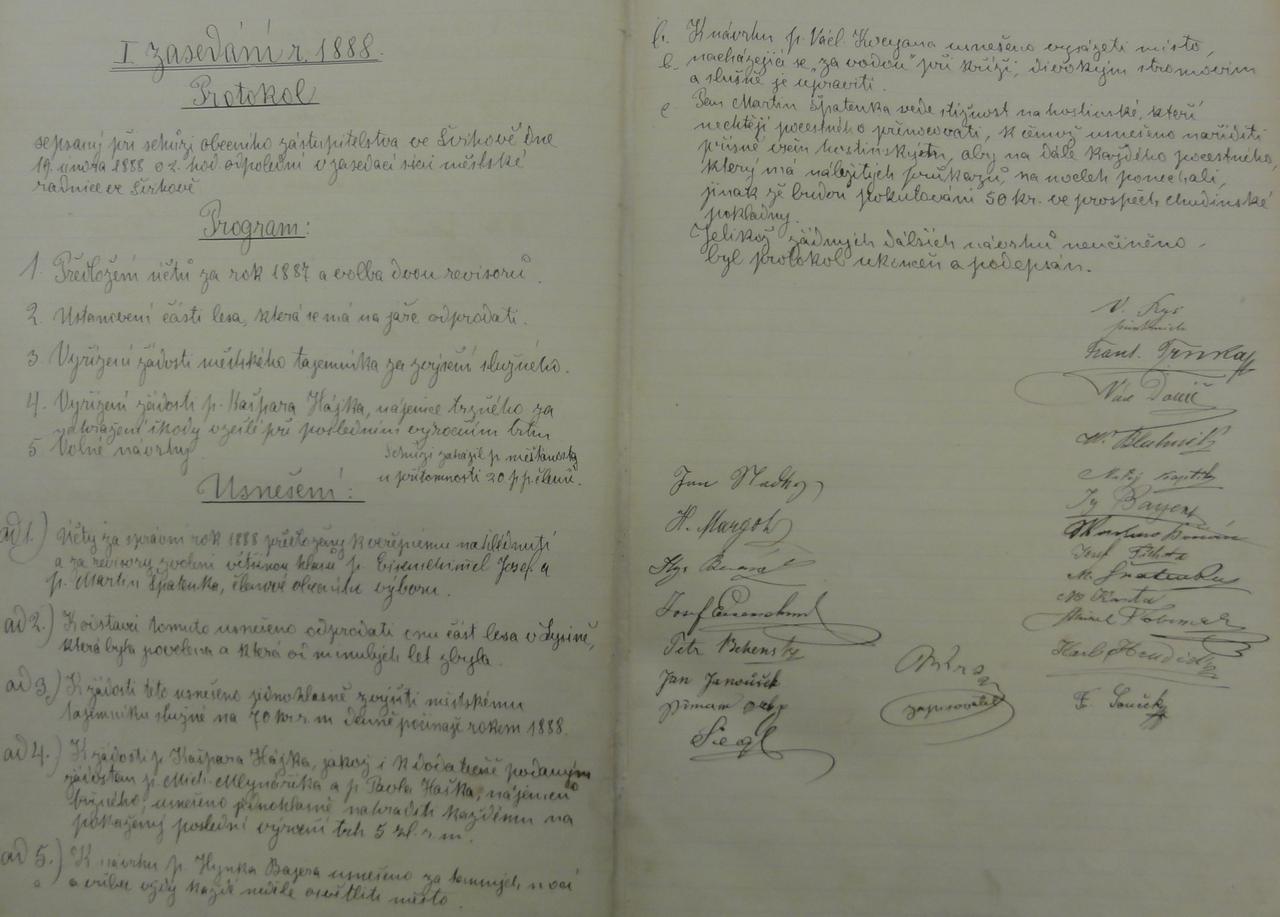 I. zasedání r. 1888.
Protokol
sepsaný při schůzi obecního zastupitelstva ve dne
19. února 1888 o 2. hod. odpolední v zasedací síni městské
radnice ve
Program:
1. Předložení účtů za rok 1887 a volba dvou revisorů.
2. Ustanovení části lesa, která se má na jaře odprodati.
3. Vyřízení žádosti městského tajemníka za zvýšení služného.
4. Vyřízení žádosti p. Kašpara Hájka, nájemce tržného za
nahražení škody vzešlé při posledním výročním trhu
5. Volné návrhy.
Schůzi zahájil p. měšťanosta
u přítomnosti 20 p.p. členů.
Usnesení:
ad 1.) Účty za správní rok 1888 předloženy k veřejnému nahlédnutí
a za revisory zvoleni většinou hlasů p. Josef a
p. Martin Špatenka, členové obecního výboru.
ad 2.) K odstavci tomuto usneseno odprodati onu část lesa v
která byla povolena a která od minulých let zbyla.
ad 3.) K žádosti této usneseno jednohlasně zvýšiti městskému
tajemníku služné na 70 kr r. m. denně počínajíc rokem 1888.
ad 4.) K žádosti p. Kašpara Hájka, jakož i k dodatečně podaným
žádostem p. Mich. Mlynaříka a p. Pavla Haška, nájemců
tržného, usneseno jednohlasně nahraditi každému na
pokažený poslední výroční trh 5 zl. r. m.
ad 5.) K návrhu p. Hynka Bayera usneseno za temných nocí
a. a vždy každé neděle osvětliti město.
b. K návrhu p. Václ. usneseno vysázeti místo,
nacházející se „za vodou“ při kříži, divokým stromovím
a slušně je upraviti.
c. Pan Martin Špatenka vede stížnost na hostinské, kteří
nechtějí pocestného přenocovati, k čemuž usneseno naříditi
přísně všem hostinským, aby na dále každého pocestného,
který má náležitých průkazů, na nocleh ponechali,
jinak že budou pokutováni 50 kr. ve prospěch chudinské
pokladny.
Jelikož žádných dalších návrhů neučiněno -
byl protokol ukončen a podepsán.
V. Kys
Frant. Trnka
Jan Sladký
H. Margoh
Ig. Bayer
Josef
M. Špatenka
Petr
Karl
Jan Janoušek
zapisovatel
F. Souček
Siegl